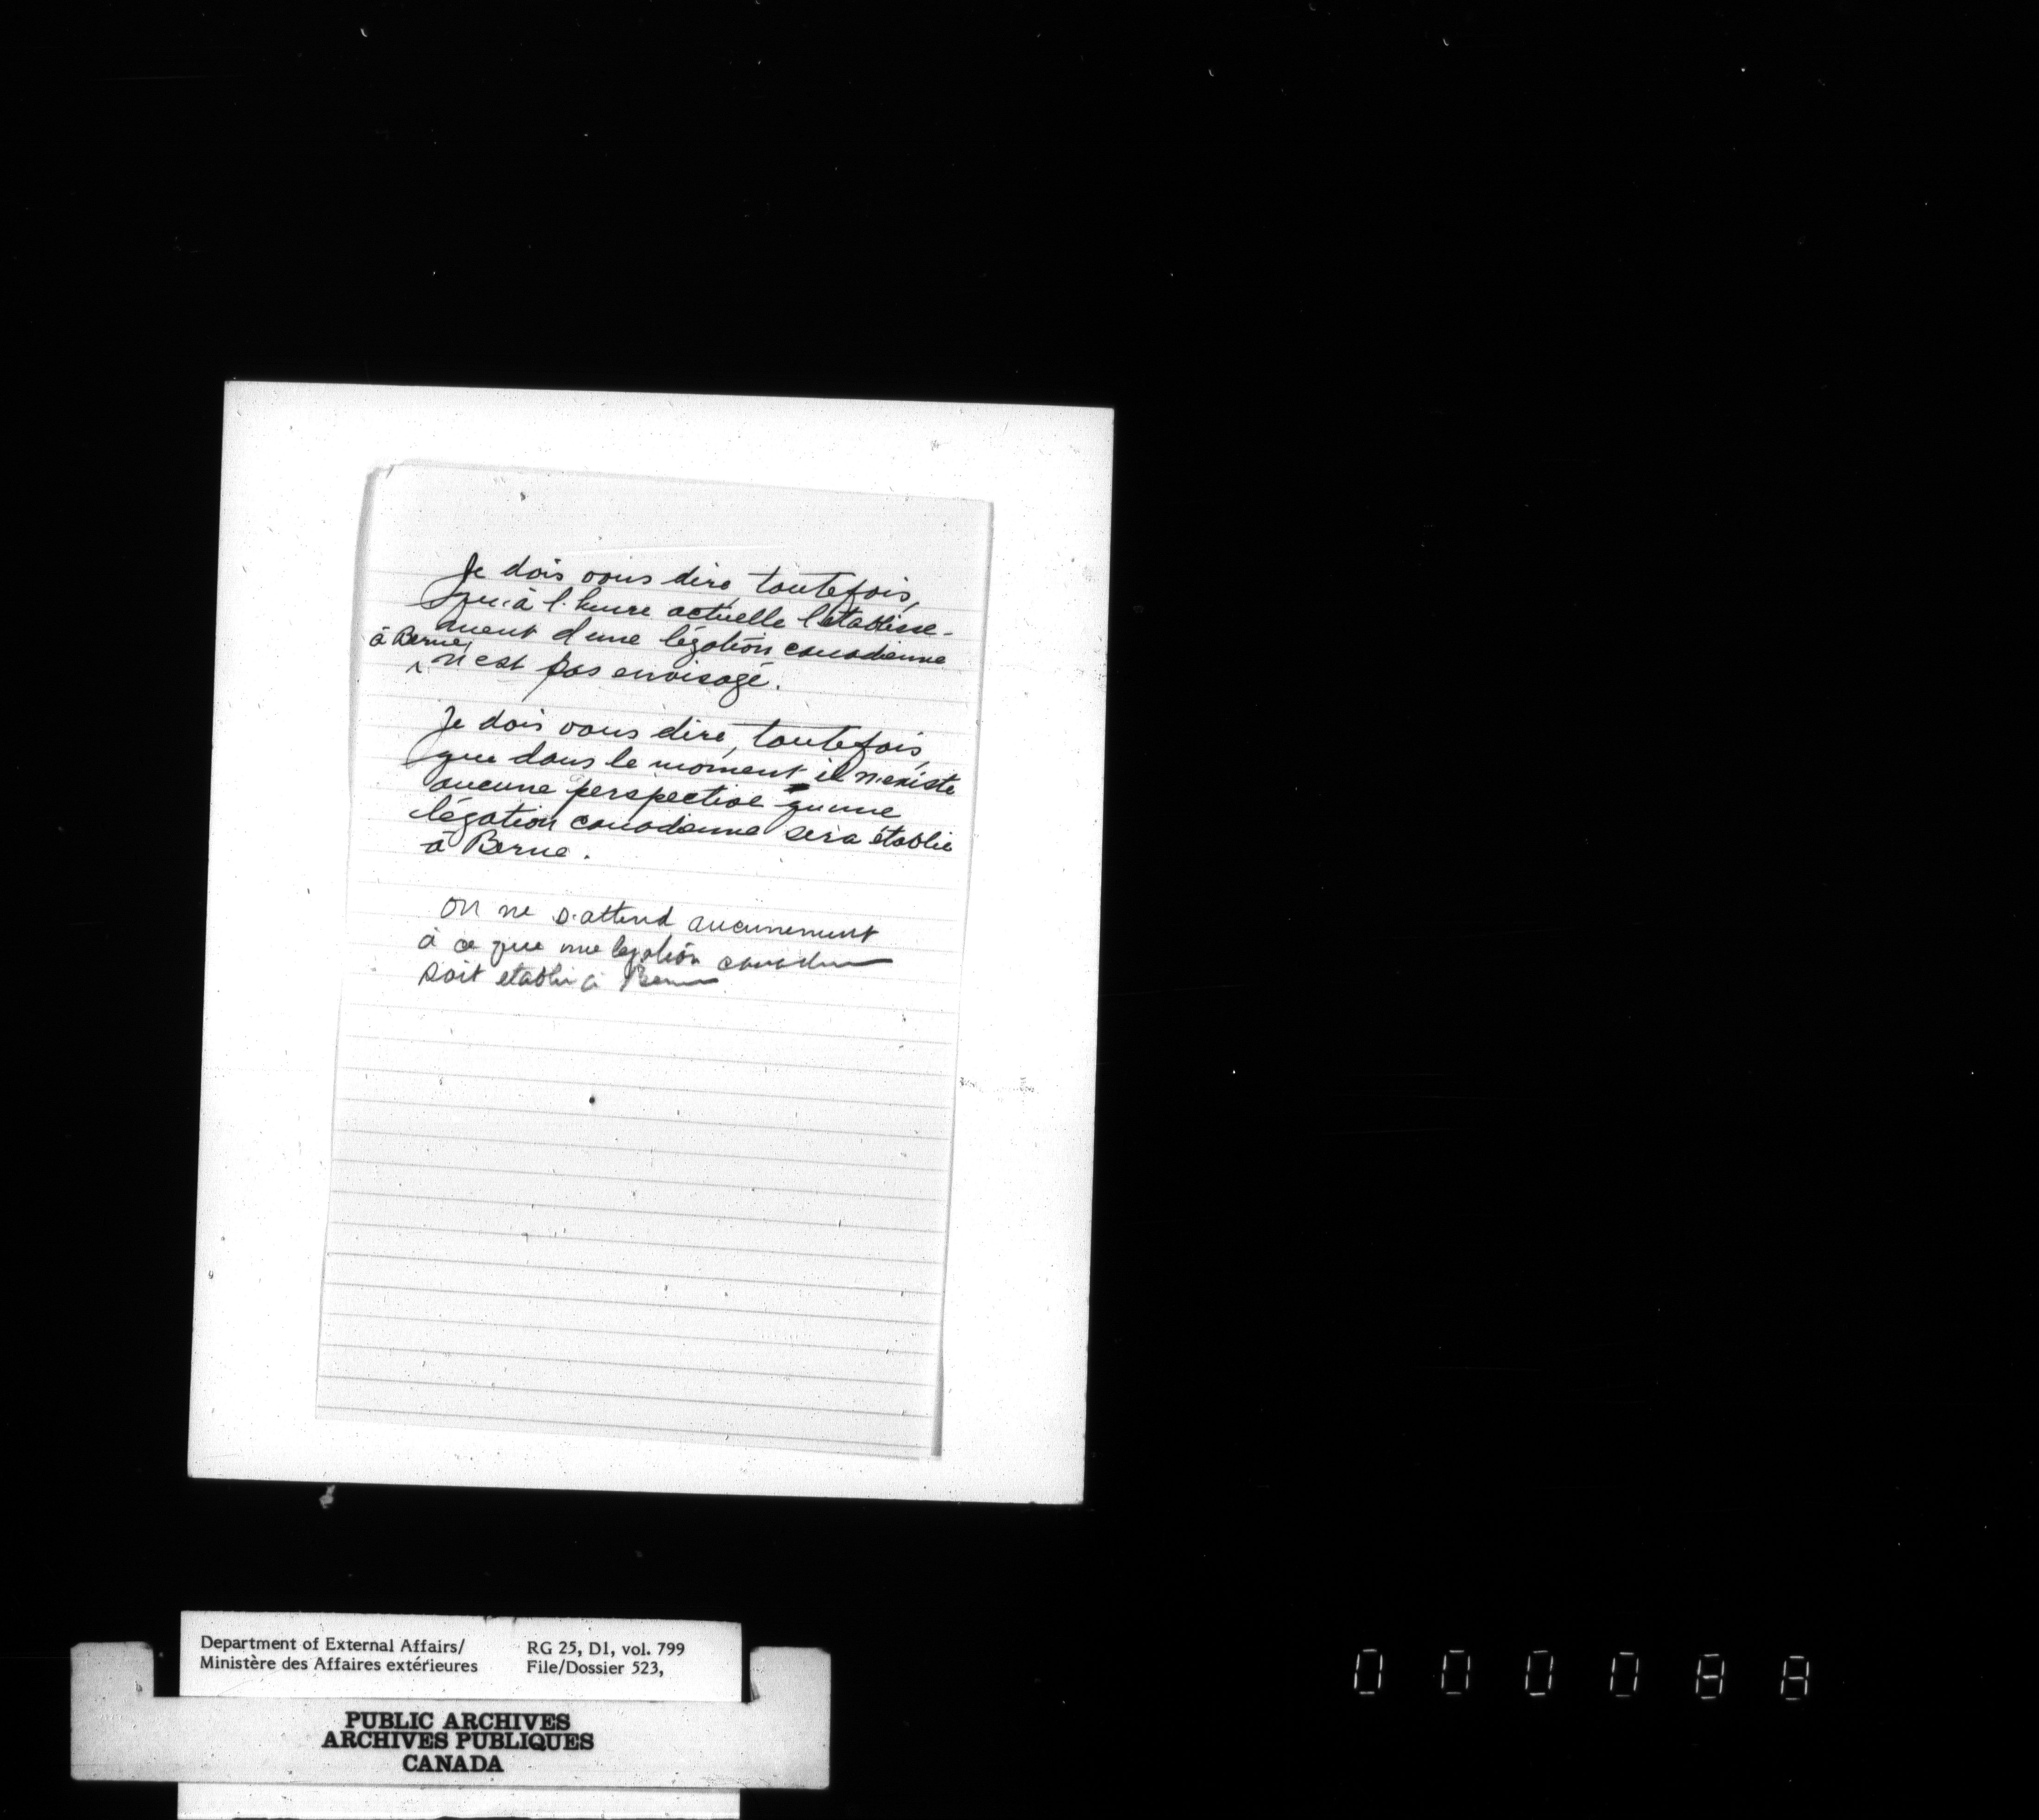 Je dois vous dire, toutefois,
qu'à l'heure actuelle l'établisse-
ment d'une légation canadienne
à Berne,
n'est pas envisagé.
Je dois vous dire, toutefois,
que dans le moment il n'existe
aucune perspective qu'une
légation canadienne sera établie
à Berne.
On ne s'attend aucunement
à ce que une legation canadienne
soit etablie à Berne
Department of External Affairs/
Ministère des Affaires extérieures
RG 25, D1, vol. 799
File/Dossier 523,
PUBLIC ARCHIVES
ARCHIVES PUBLIQUES
CANADA
000088